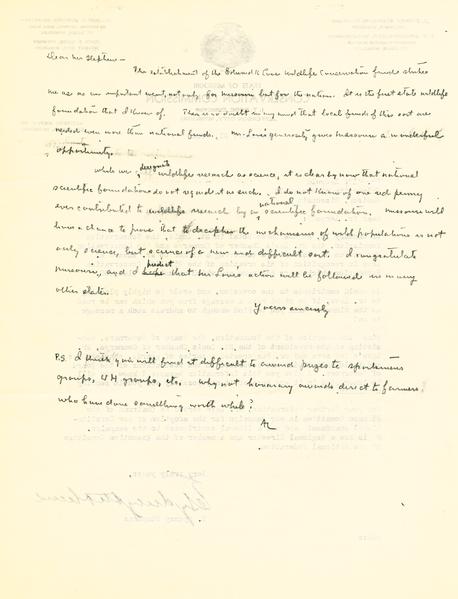 Dear Mr Stephens —
The establishment of the Edward K Love Wildlife Conservation fund strikes
me as an important event, not only for Missouri but for the nation. It is the first state wildlife
foundation that I know of. There is no doubt in my mind that local funds of this sort are
needed even more than national funds. Mr. Love's generosity gives Missouri a wonderful
opportunity.
While we designate wildlife research as science, it is clear by now that national
scientific foundations do not regard it as such. I do not know of one red penny
ever contributed to wildlife research by a national scientific foundation. Missouri will
have a chance to prove that to decipher the mechanisms of wild populations is not
only science, but science of a new and difficult sort. I congratulate
Missouri, and I predict hope that Mr Love's action will be followed in many
other states.
Yours sincerely
P.S. I think you will find it difficult to award prizes to sportsmens
groups, 4H groups, etc. Why not honorary awards direct to farmers
who have done something worth while?
AL